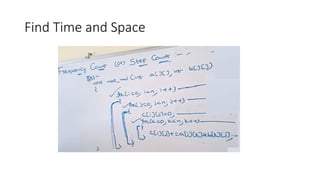 Find Time and Space
Frequency Count (or) Step Count
int a[][], int b[][])
{
for(i=0, i<n, i++)
for(j=0, j<n, j++)
c[i][j]=0,
for(k=0, k<n, k++)
c[i][j]+=a[i][k]*b[k][j],
}